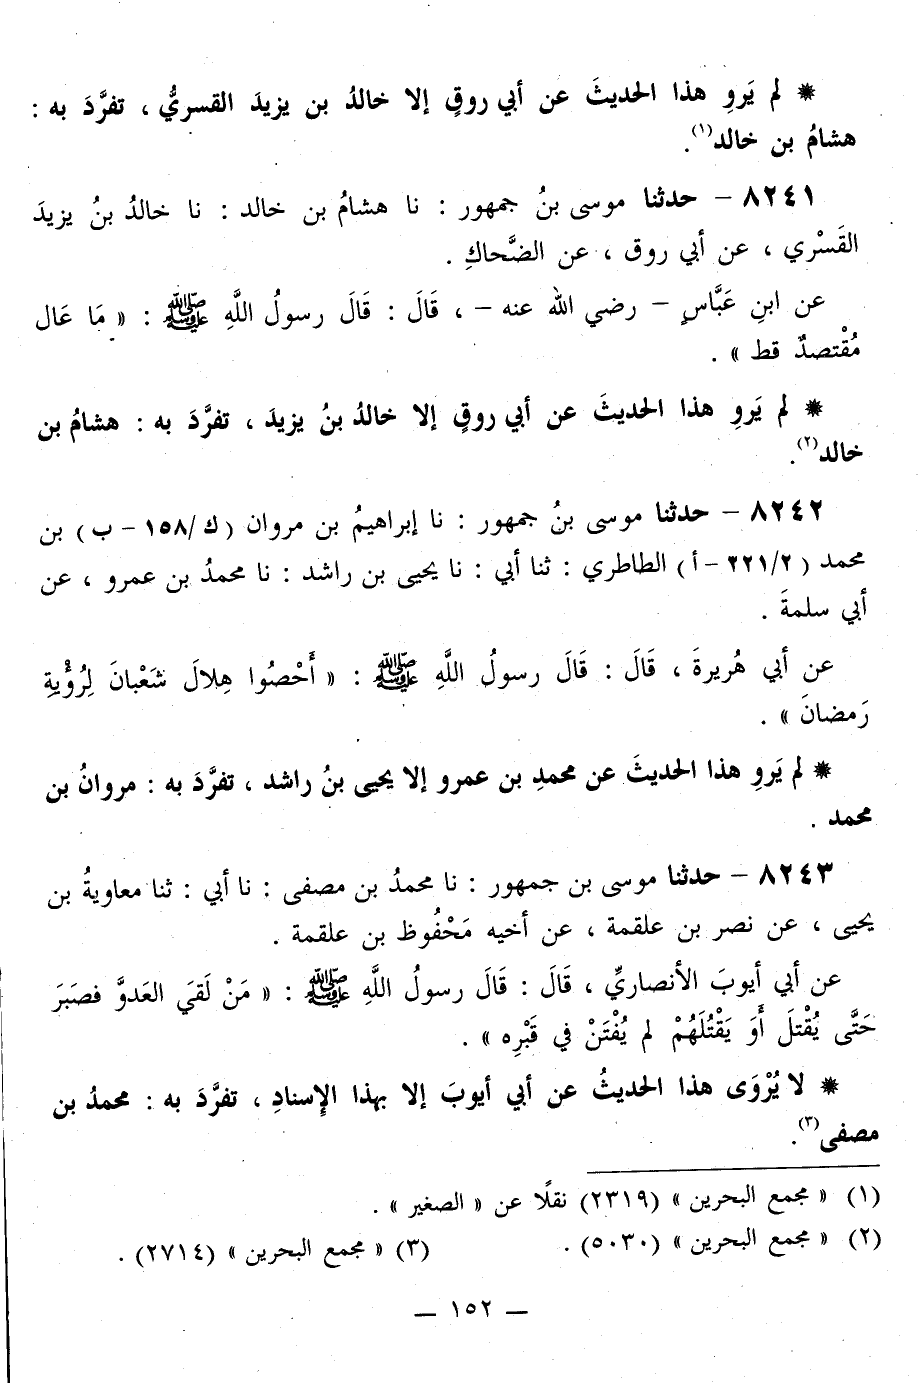 * لم يَروِ هذا الحديثَ عن أبي روقٍ إلا خالدُ بن يزيدَ القسريُّ ، تفرَّدَ به :
هشامُ بن خالد(١).
٨٢٤١ – حدثنا موسى بنُ جمهور : نا هشامُ بن خالد : نا خالدُ بنُ يزيدَ
القَسْري ، عن أبي روق ، عن الضَّحاكِ .
عن ابنِ عَبَّاسٍ – رضي الله عنه – ، قَالَ : قَالَ رسولُ اللَّهِ ﷺ : « مَا عَال
مُقْتصدٌ قط » .
* لم يَروِ هذا الحديثَ عن أبي روقٍ إلا خالدُ بنُ يزيدَ ، تفرَّدَ به : هشامُ بن
خالد(٢).
٨٢٤٢ – حدثنا موسى بنُ جمهور : نا إبراهيمُ بن مروان (ك/١٥٨ – ب) بن
محمد (٢/٢٢١ – أ) الطاطري : ثنا أبي : نا يحيى بن راشد : نا محمدُ بن عمرو ، عن
أبي سلمةَ .
عن أبي هُريرةَ ، قَالَ : قَالَ رسولُ اللَّهِ ﷺ : « أَحْصُوا هِلالَ شَعْبانَ لِرُؤْيةِ
رَمضانَ » .
* لم يَروِ هذا الحديثَ عن محمدِ بن عمرو إلا يحيى بنُ راشد ، تفرَّدَ به : مروانُ بن
محمد .
٨٢٤٣ – حدثنا موسى بن جمهور : نا محمدُ بن مصفى : نا أبي : ثنا معاويةُ بن
يحيى ، عن نصر بن علقمة ، عن أخيه مَحْفُوظ بن علقمة .
عن أبي أيوبَ الأنصاريِّ ، قَالَ : قَالَ رسولُ اللَّهِ ﷺ : « مَنْ لَقيَ العَدوَّ فصَبَرَ
حَتَّى يُقْتلَ أَوَ يَقْتُلَهُمْ لم يُفْتَنْ في قَبْرِه » .
* لا يُرْوَى هذا الحديثُ عن أبي أيوبَ إلا بهذا الإسنادِ ، تفرَّدَ به : محمدُ بن
مصفى(٣).
(١) « مجمع البحرين » (٢٣١٩) نقلًا عن « الصغير » .
(٢) « مجمع البحرين » (٥٠٣٠) . (٣) « مجمع البحرين » (٢٧١٤) .
— ١٥٢ —